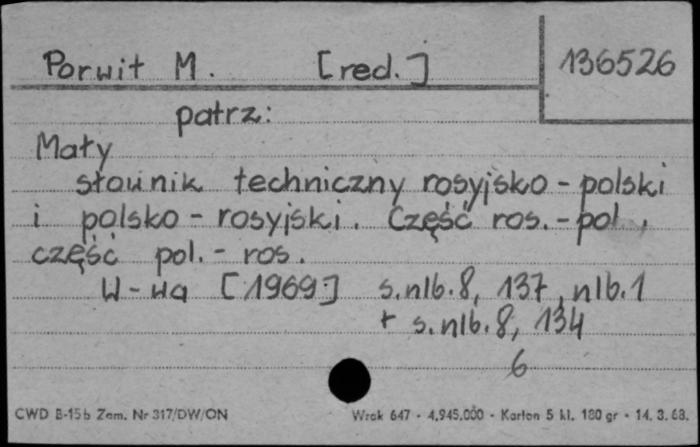 Porwit M. [red.] 136526
patrz:
Mały
słownik techniczny rosyjsko - polski
i polsko - rosyjski. Część ros. - pol.,
część pol. - ros.
W-wa [1969] s.nlb. 8, 137, nlb. 1
+ s.nlb. 8, 134
6
CWD B-15b Zam. Nr 317/DW/ON Wrak 647 - 4.945.000 - Karton 5 kl. 180 gr - 14. 3. 68.